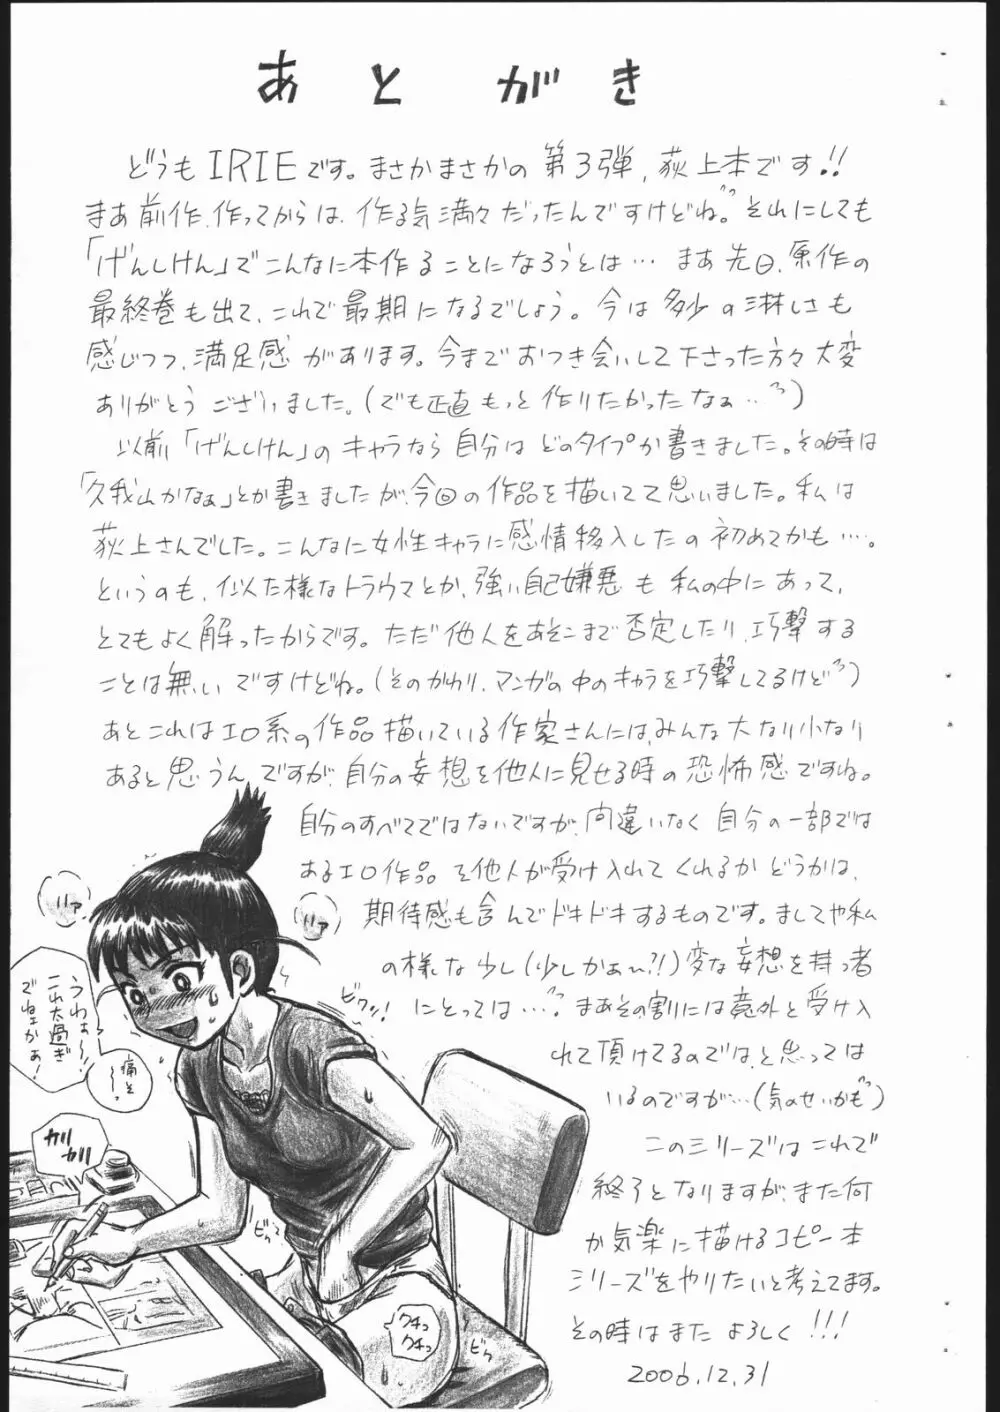 あとがき
どうもIRIEです。まさかまさかの第3弾、荻上本です!!
まあ前作、作ってからは、作る気満々だったんですけどね。それにしても
「げんしけん」でこんなに本作ることになろうとは… まあ先日、原作の
最終巻も出て、これで最期になるでしょう。今は多少の淋しさも
感じつつ、満足感があります。今までおつき会いして下さった方々大変
ありがとうございました。(でも正直もっと作りたかったなぁ…)
以前「げんしけん」のキャラなら自分はどのタイプか書きました。その時は
「久我山かなぁ」とか書きましたが、今回の作品を描いてて思いました。私は
荻上さんでした。こんなに女性キャラに感情移入したの初めてかも…。
というのも、似た様なトラウマとか、強い自己嫌悪も私の中にあって、
とてもよく解ったからです。ただ他人をあそこまで否定したり、攻撃する
ことは無いですけどね。(そのかわり、マンガの中のキャラを攻撃してるけど)
あとこれはエロ系の作品描いている作家さんには、みんな大なり小なり
あると思うんですが、自分の妄想を他人に見せる時の恐怖感ですね。
自分のすべてではないですが、間違いなく自分の一部では
あるエロ作品を他人が受け入れてくれるかどうかは、
期待感も含んでドキドキするものです。ましてや私
の様な少し(少しかぁ〜?!)変な妄想を持つ者
にとっては…。まあその割には意外と受け入
れて頂けてるのでは、と思っては
いるのですが…(気のせいかも)
このシリーズはこれで
終了となりますが、また何
か気楽に描けるコピー本
シリーズをやりたいと考えてます。
その時はまたよろしく!!!
2006.12.31
ハァ
ハァ
うわぁ〜!
これ太過ぎ
でねェかぁ!
痛そ〜っ
カリ
カリ
ビクッ!
ビクッ
クチュ
クチュ
ビクッ